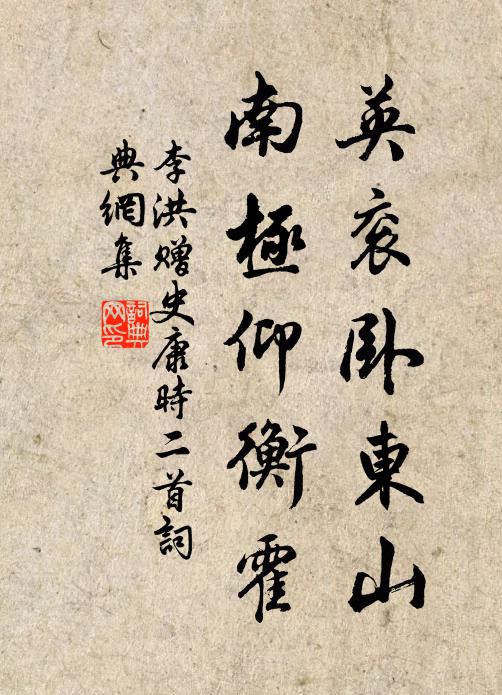 英衮卧東山
南極仰衡霍
李洪贈史康時二首詞
典網集
詞典
网印